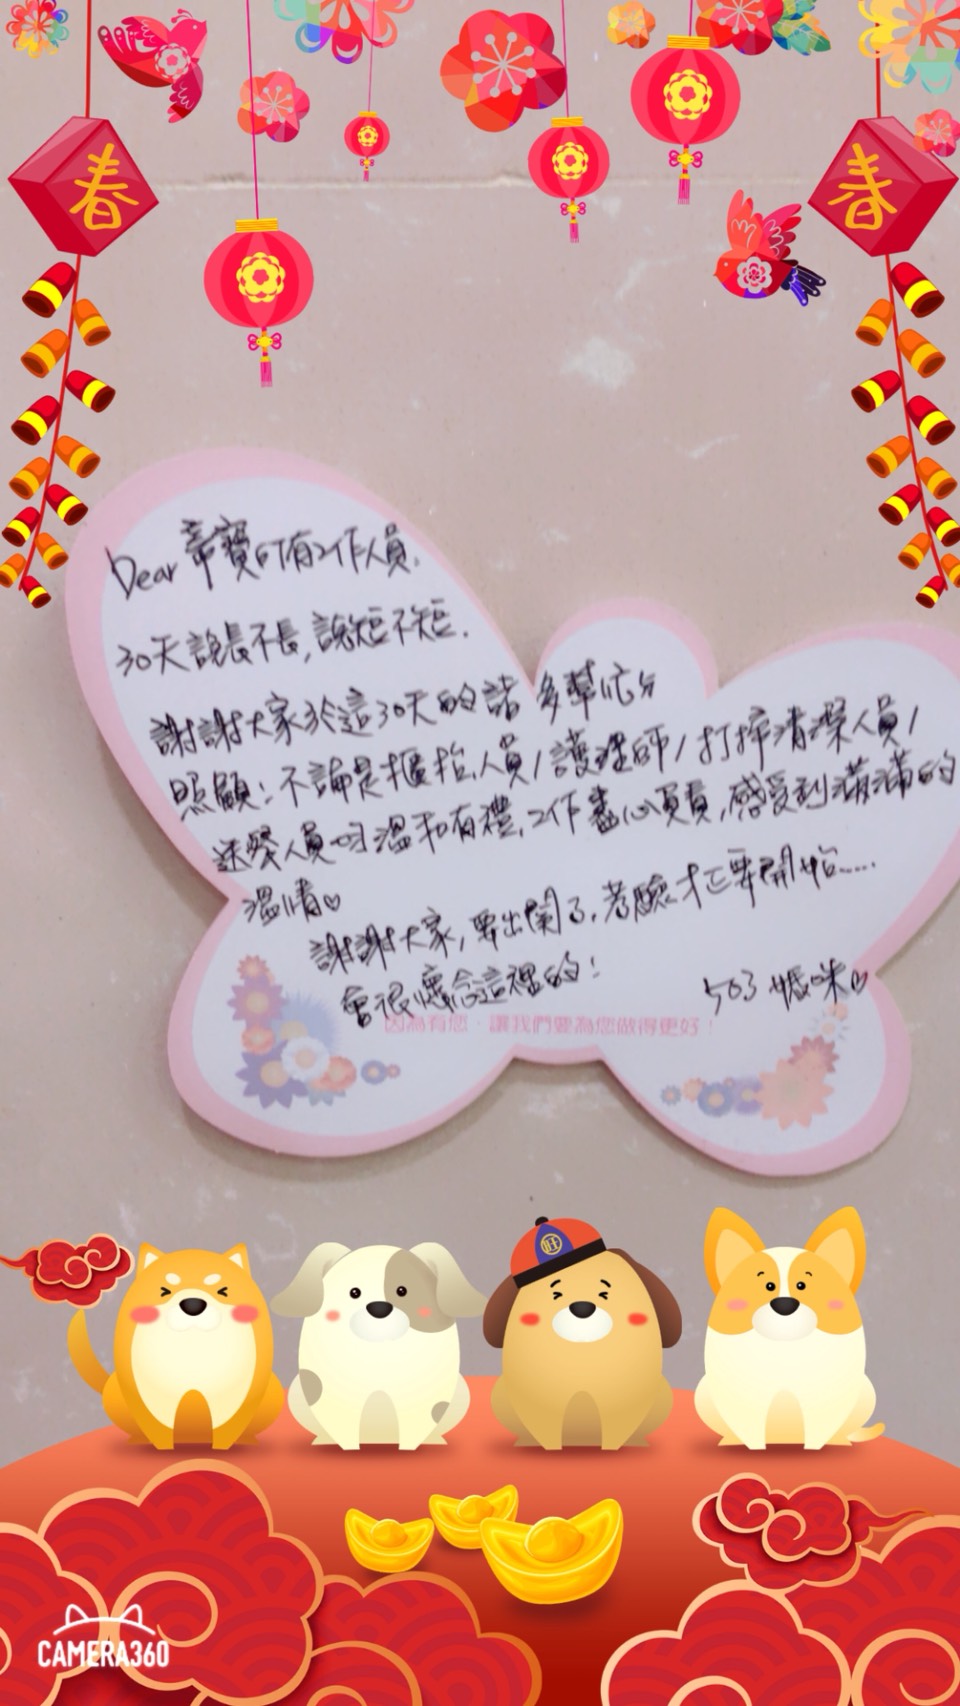 春
春
Dear 帝寶所有工作人員,
30天說長不長,說短不短.
謝謝大家於這30天的諸多幫忙分
照顧:不論是櫃抬人員/護理師/打掃清潔人員/
送餐人員均溫和有禮,工作盡心負責,感受到滿滿的
溫情♡
謝謝大家,要出關了,考驗才正要開始......
會很懷念這裡的!
503 媽咪♡
因為有您,讓我們要為您做得更好!
旺
CAMERA360